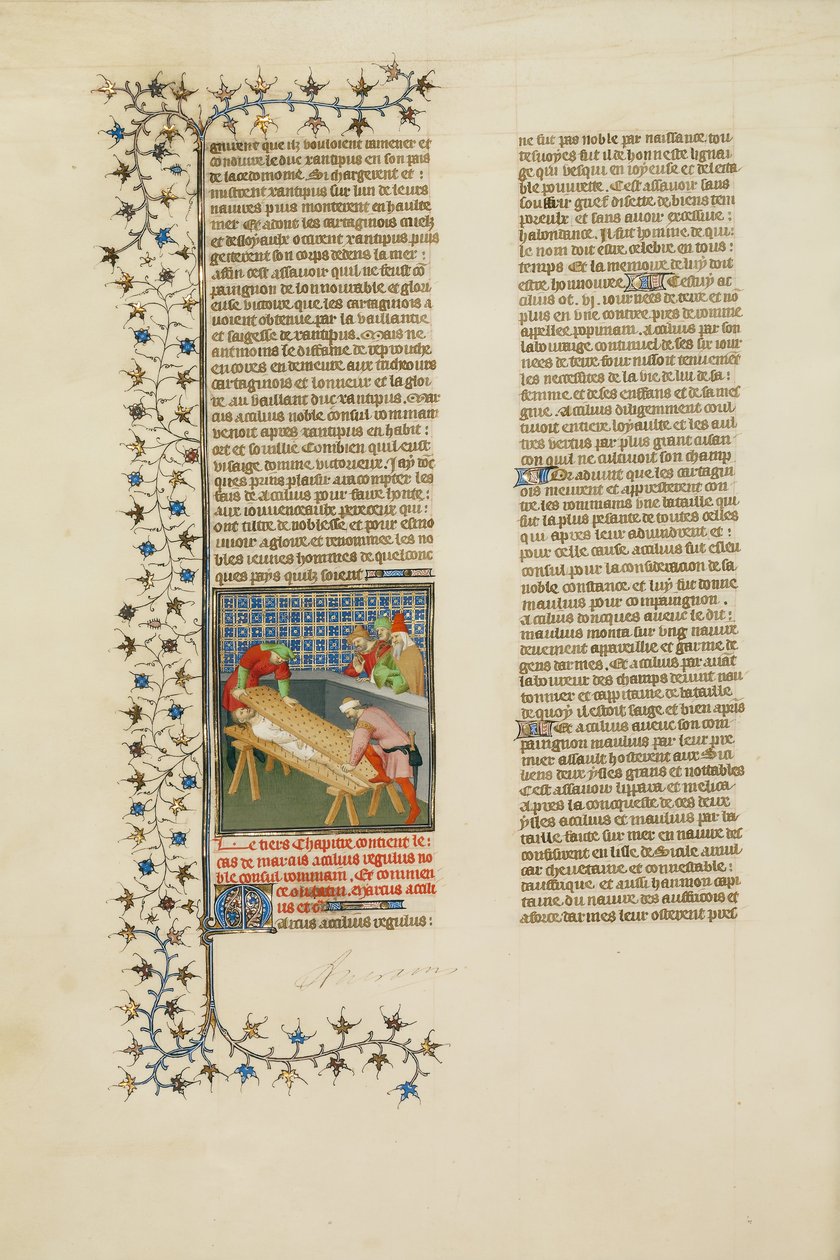 gnirent que ilz vouloient ramener et
convoier le duc xantipus en son pais
de lacedomome. Si chargerent et :
mistrent xantipus sur lun de leurs
navires puis monterent en haulte
mer Et adont les cartaginois cruelz
et desloyaulx occirent xantipus puis
getterent son corps dedens la mer :
affin cest assavoir quil ne feust co
paignon de lonnourable et glori
euse victoire que les cartaginois a
voient obtenue par la vaillantie
et saigesse de xantipus. Mais ne
antmoins le diffame de reprouche
encores en demeure aux tricheours
cartaginois et lonneur et la gloi
re au vaillant duc xantipus. Mar
cus acilius noble consul rommain
venoit apres xantipus en habit :
ort et souillie Combien quil eust
visaige domme victorieux. Jay doc
ques prins plaisir a racompter les
fais de acilius pour faire honte :
aux jouvenceaulx pereceux qui :
ont tiltre de noblesse et pour esmo
uvoir a gloire et renommee les no
bles jeunes hommes de quelconc
ques pays quilz soient
Le tiers Chapitre contient le :
cas de marcus acilius regulus no
ble consul rommain. Et commen
ce ou latin. Marcus acili
us et c
Marcus acilius regulus :
ne fut pas noble par naissance. tou
tesvoyes fut il de honneste lignai
ge qui vesqui en joyeuse et delecta
ble pouvrette. Cest assavoir sans
souffrir grief disette de biens tem
poreulx et sans avoir excessive :
habondance. Il fut homme de qui :
le nom doit estre celebre en tous :
temps Et la memoire de luy doit
estre honnouree. Cestuy ac
cilius ot .vj. journees de terre et no
plus en une contree pres de romme
appellee popiniam. Acilius par son
labouraige continuel de ses six jour
nees de terre fournissoit tenuement
les necessites de la vie de lui de sa :
femme et de ses enffans et de sa mes
gnie. Acilius diligemment coul
tivoit entiere loyaulte et les aul
tres vertus par plus grant cusan
con quil ne cultivoit son champ
Or advint que les cartagin
ois meurent et appresterent con
tre les rommains une bataille qui
fut la plus pesante de toutes celles
qui apres leur advindrent et :
pour celle cause acilius fut esleu
consul pour la consideration de sa
noble constance et luy fut donne
manlius pour compaignon.
Acilius doncques avecc le dit :
manlius monta sur ung navire
deuement appareille et garme de
gens darmes. Et acilius par avant
laboureur des champs devint nau
tonnier et cappitaine de bataille
de quoy il estoit saige et bien apris
Et acilius avecc son com
paingnon manlius par leur pre
mier assault hosterent aux Sici
liens deux ysles grans et nottables
Cest assavoir lippara et melica
Apres la conqueste de ces deux
ysles acilius et manlius par ba
taille faicte sur mer en navire des
confisirent en lisle de Sicile amul
car chevetaine et connestable :
dauffrique et aussi hannon capi
taine du navire des auffricois et
a force darmes leur osterent pres